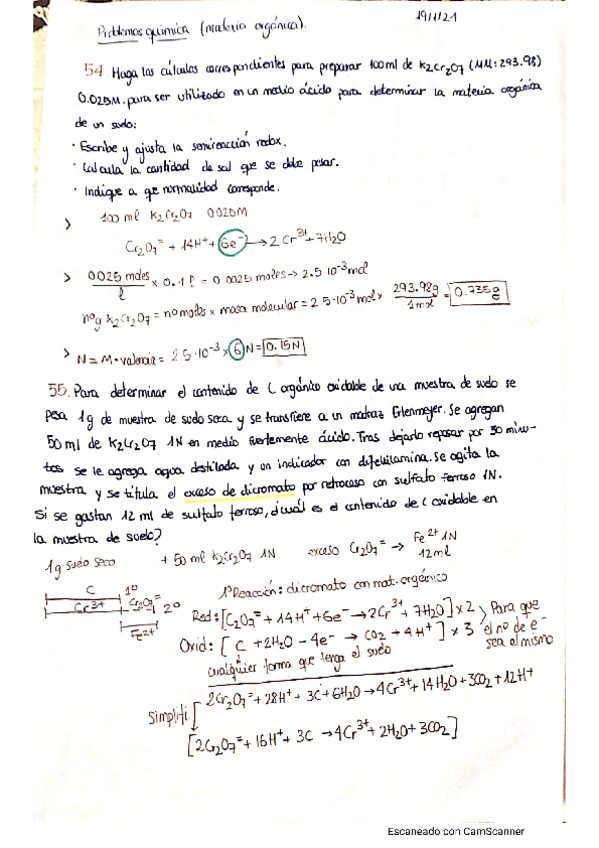 19/1/21
Problemas química (materia orgánica).
54. Haga los cálculos correspondientes para preparar 100ml de K2Cr2O7 (MM: 293.98)
0.025M. para ser utilizado en un medio ácido para determinar la materia orgánica
de un suelo:
· Escribe y ajusta la semireacción redox.
· Calcula la cantidad de sal que se debe pesar.
· Indique a que normalidad corresponde.
> 100 ml K2Cr2O7 0025M
Cr2O7= + 14H+ + 6e- → 2Cr3+ + 7H2O
> 0025 moles/l x 0.1 l = 0 0025 moles → 2.5 10-3 mol
nº g K2Cr2O7 = nº moles x masa molecular = 2 5·10-3 mol x 293.98g/1mol = 0.735g
> N = M·valencia = 2 5·10-3 x 6 N = 0.15N
55. Para determinar el contenido de C orgánico oxidable de una muestra de suelo se
pesa 1g de muestra de suelo seca y se transfiere a un matraz Erlenmeyer. Se agregan
50 ml de K2Cr2O7 1N en medio fuertemente ácido. Tras dejarlo reposar por 30 minu-
tos se le agrega agua destilada y un indicador con difenilamina. Se agita la
muestra y se titula el exceso de dicromato por retroceso con sulfato ferroso 1N.
Si se gastan 12 ml de sulfato ferroso, ¿cuál es el contenido de C oxidable en
la muestra de suelo?
1g suelo seco + 50 ml K2Cr2O7 1N exceso Cr2O7= → Fe2+ 1N 12ml
C 1º
Cr3+ Cr2O7= 2º
Fe2+
1ªReacción: dicromato con mat. orgánico
Red: [C2O7= + 14H+ + 6e- → 2Cr3+ + 7H2O] x 2
Oxid: [C + 2H2O - 4e- → CO2 + 4H+] x 3
Para que
el nº de e-
sea el mismo
cualquier forma que tenga el suelo
2Cr2O7= + 28H+ + 3C + 6H2O → 4Cr3+ + 14H2O + 3CO2 + 12H+
Simplifi
[2Cr2O7= + 16H+ + 3C → 4Cr3+ + 2H2O + 3CO2]
Escaneado con CamScanner